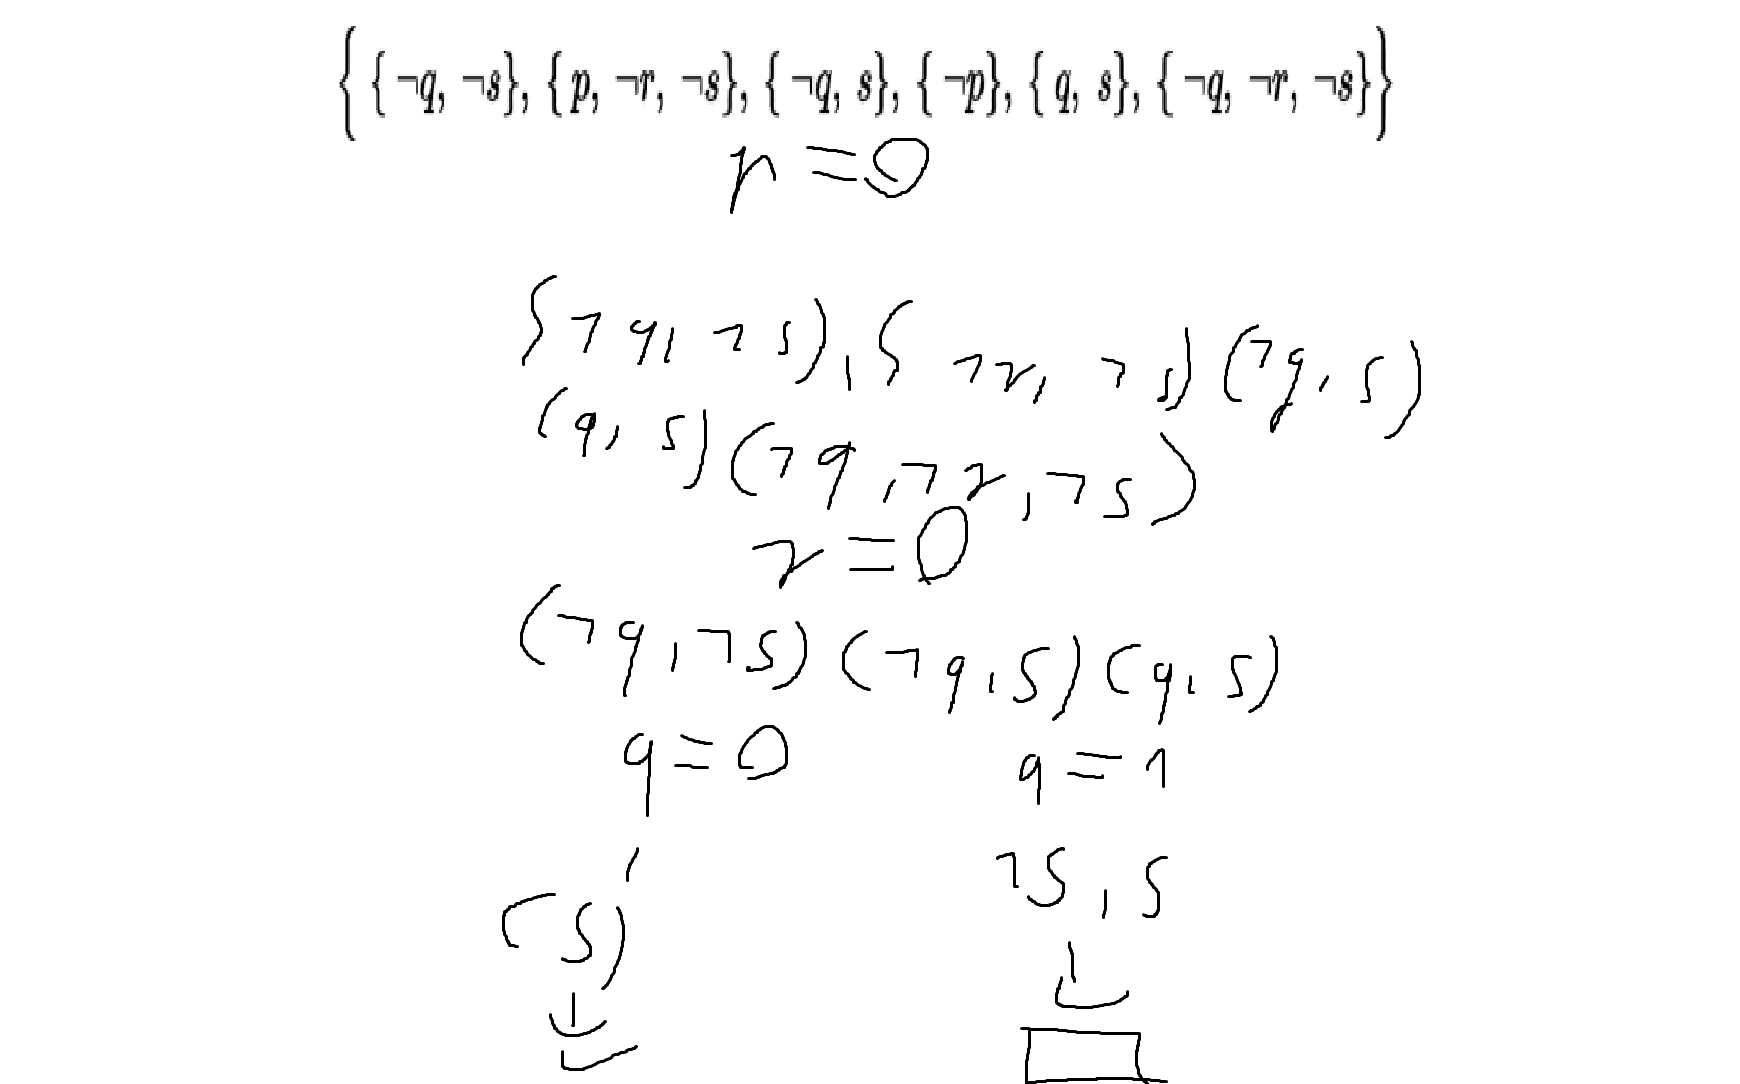 { {¬q, ¬s}, {p, ¬r, ¬s}, {¬q, s}, {¬p}, {q, s}, {¬q, ¬r, ¬s}}
p=0
{¬q, ¬s), { ¬r, ¬s) (¬q, s)
(q, s) (¬q, ¬r, ¬s)
r=0
(¬q, ¬s) (¬q, s) (q, s)
q=0 q=1
(s) ¬s, s